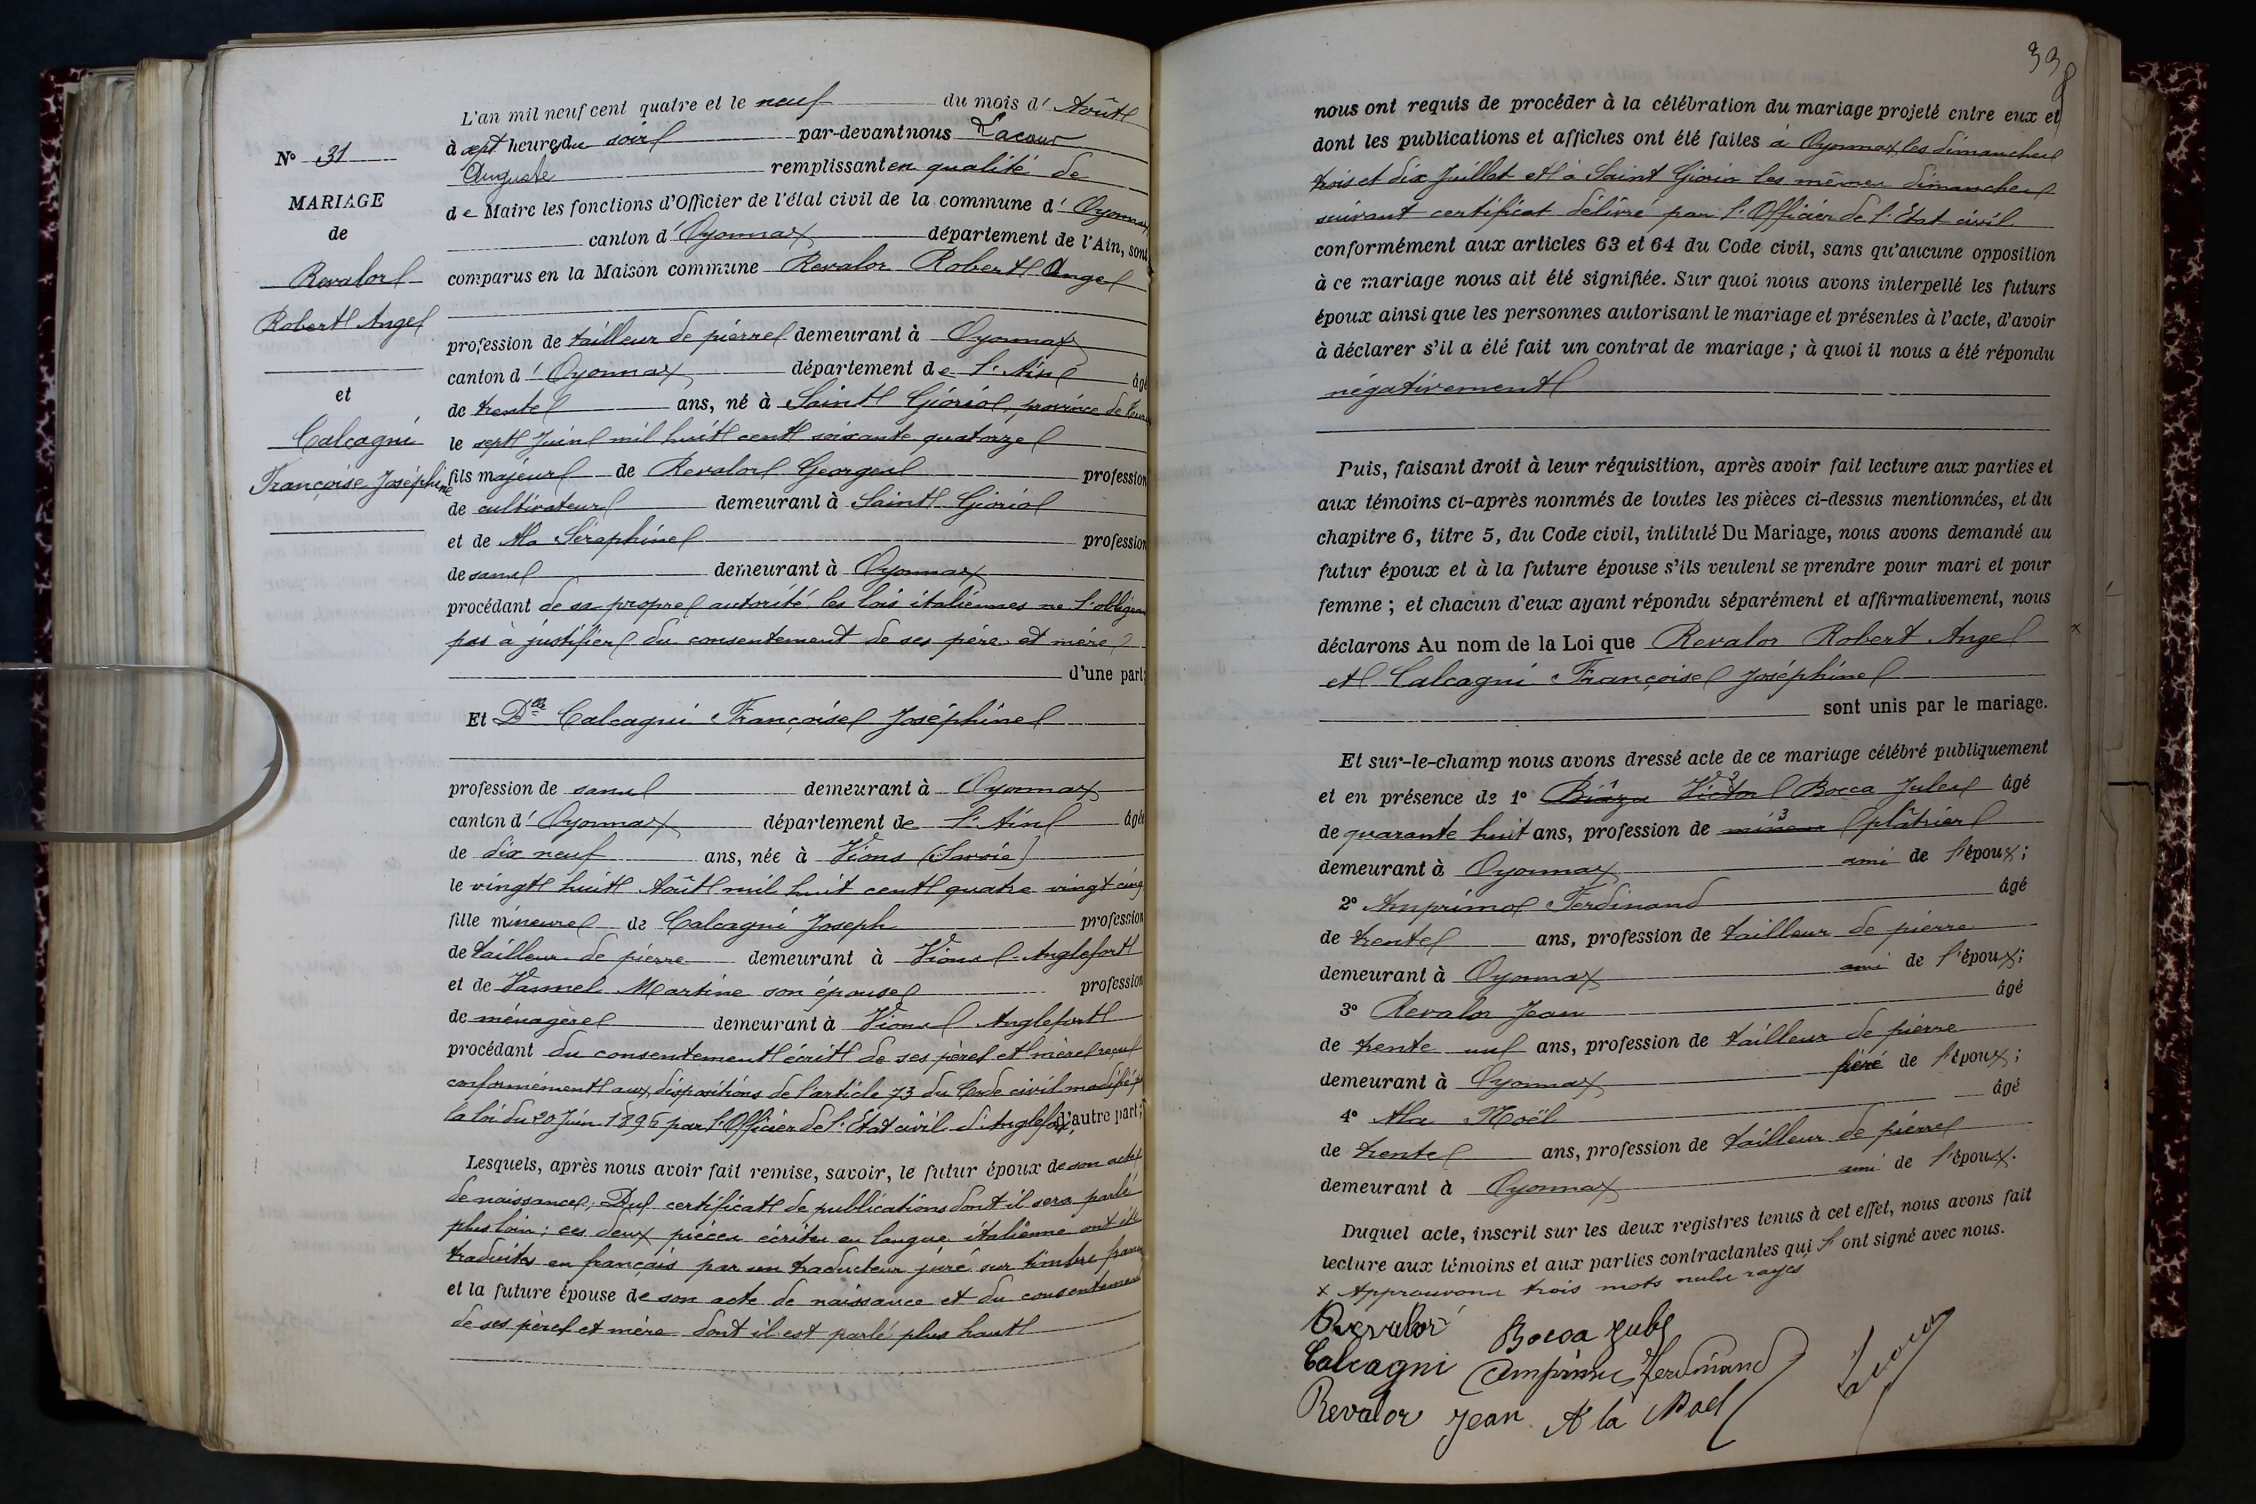 L'an mil neuf cent quatre et le neuf du mois d' Août
à sept heures du soir par-devant nous Lacour
Auguste remplissant en qualité de
de Maire les fonctions d'Officier de l'état civil de la commune d' Oyonnax
canton d' Oyonnax département de l'Ain, sont
comparus en la Maison commune Revalor Robert Angel
profession de tailleur de pierre demeurant à Oyonnax
canton d' Oyonnax département de l'Ain âgé
de trente ans, né à Saint Giorio, province de
le sept Juin mil huit cent soixante quatorze
fils majeur de Revalor Georges profession
de cultivateur demeurant à Saint Giorio
et de Ala Séraphine profession
de sans demeurant à Oyonnax
procédant de sa propre autorité les lois italiennes ne l'obligeant
pas à justifier du consentement de ses père et mère
d'une part;
Et Dlle Calcagni Françoise Joséphine
profession de sans demeurant à Oyonnax
canton d' Oyonnax département de l'Ain âgée
de dix neuf ans, née à Vions (Savoie)
le vingt huit Août mil huit cent quatre vingt cinq
fille mineure de Calcagni Joseph profession
de tailleur de pierre demeurant à Anglefort
et de Martine son épouse profession
de ménagère demeurant à Anglefort
procédant du consentement écrit de ses père et mère reçu
conformément aux dispositions de l'article 73 du Code civil modifié par
la loi du 20 Juin 1896 par l'Officier de l'Etat civil d'Anglefort, d'autre part;
Lesquels, après nous avoir fait remise, savoir, le futur époux de son acte
de naissance; Du certificat de publications dont il sera parlé
plus loin; ces deux pièces écrites en langue italienne ont été
traduites en français par un traducteur juré sur timbre
et la future épouse de son acte de naissance et du consentement
de ses père et mère dont il est parlé plus haut
N° 31
MARIAGE
de
Revalor
Robert Angel
et
Calcagni
Françoise Joséphine
338
nous ont requis de procéder à la célébration du mariage projeté entre eux et
dont les publications et affiches ont été faites à Oyonnax les dimanches
trois et dix Juillet et à Saint Giorio les mêmes dimanches
suivant certificat délivré par l'Officier de l'Etat civil
conformément aux articles 63 et 64 du Code civil, sans qu'aucune opposition
à ce mariage nous ait été signifiée. Sur quoi nous avons interpellé les futurs
époux ainsi que les personnes autorisant le mariage et présentes à l'acte, d'avoir
à déclarer s'il a été fait un contrat de mariage ; à quoi il nous a été répondu
négativement
Puis, faisant droit à leur réquisition, après avoir fait lecture aux parties et
aux témoins ci-après nommés de toutes les pièces ci-dessus mentionnées, et du
chapitre 6, titre 5, du Code civil, intitulé Du Mariage, nous avons demandé au
futur époux et à la future épouse s'ils veulent se prendre pour mari et pour
femme ; et chacun d'eux ayant répondu séparément et affirmativement, nous
déclarons Au nom de la Loi que Revalor Robert Angel x
et Calcagni Françoise Joséphine
sont unis par le mariage.
Et sur-le-champ nous avons dressé acte de ce mariage célébré publiquement
et en présence de 1° Victor Bocca Jules âgé
de quarante huit ans, profession de mineur plâtrier
demeurant à Oyonnax ami de l'époux;
2° Amprimo Ferdinand âgé
de trente ans, profession de tailleur de pierre
demeurant à Oyonnax ami de l'époux;
3° Revalor Jean âgé
de trente un ans, profession de tailleur de pierre
demeurant à Oyonnax frère de l'époux;
4° Ala Noël âgé
de trente ans, profession de tailleur de pierre
demeurant à Oyonnax ami de l'époux.
Duquel acte, inscrit sur les deux registres tenus à cet effet, nous avons fait
lecture aux témoins et aux parties contractantes qui l' ont signé avec nous.
x Approuvons trois mots nuls rayés
Revalor Bocca Jules
Calcagni Amprimo Ferdinand Lacour
Revalor Jean A la Noel